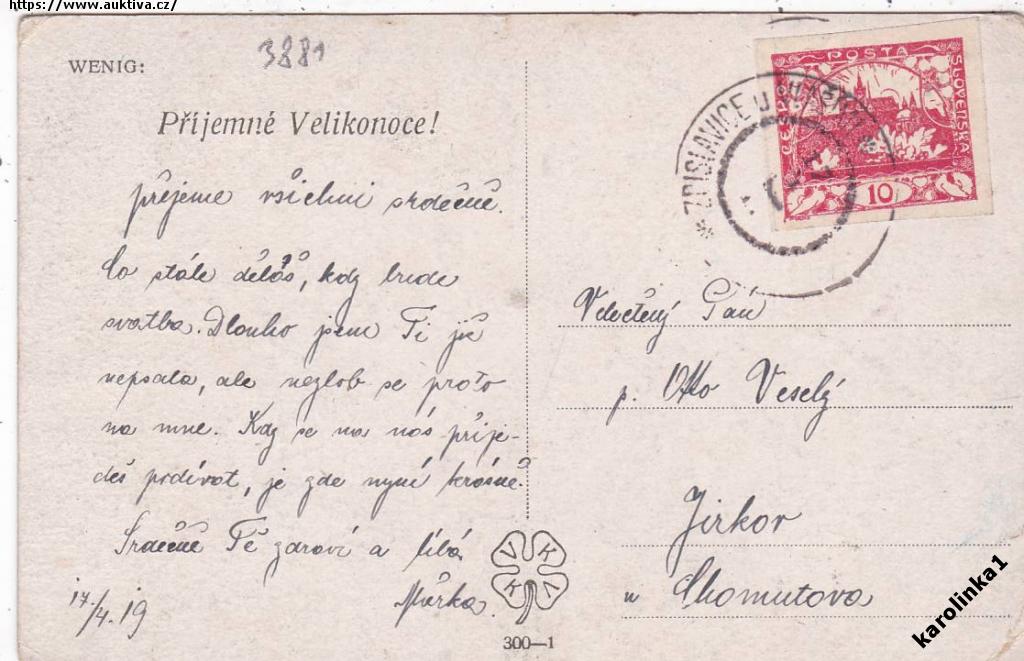 https://www.auktiva.cz/
WENIG:
3881
Příjemné Velikonoce!
přejeme všichni srdečně.
Co stále děláš, kdy bude
svatba. Dlouho jsem Ti již
nepsala, ale nezlob se proto
na mne. Kdy se na nás přije-
deš podívat, je zde nyní krásně.
Srdečně Tě zdraví a líbá
Mařka.
17./4. 19
V K V K
300—1
POŠTA
ČESKO
SLOVENSKA
10
ZDISLAVICE U
Velectěný Pán
p. Otto Veselý
Jirkov
u Chomutova
karolinka1